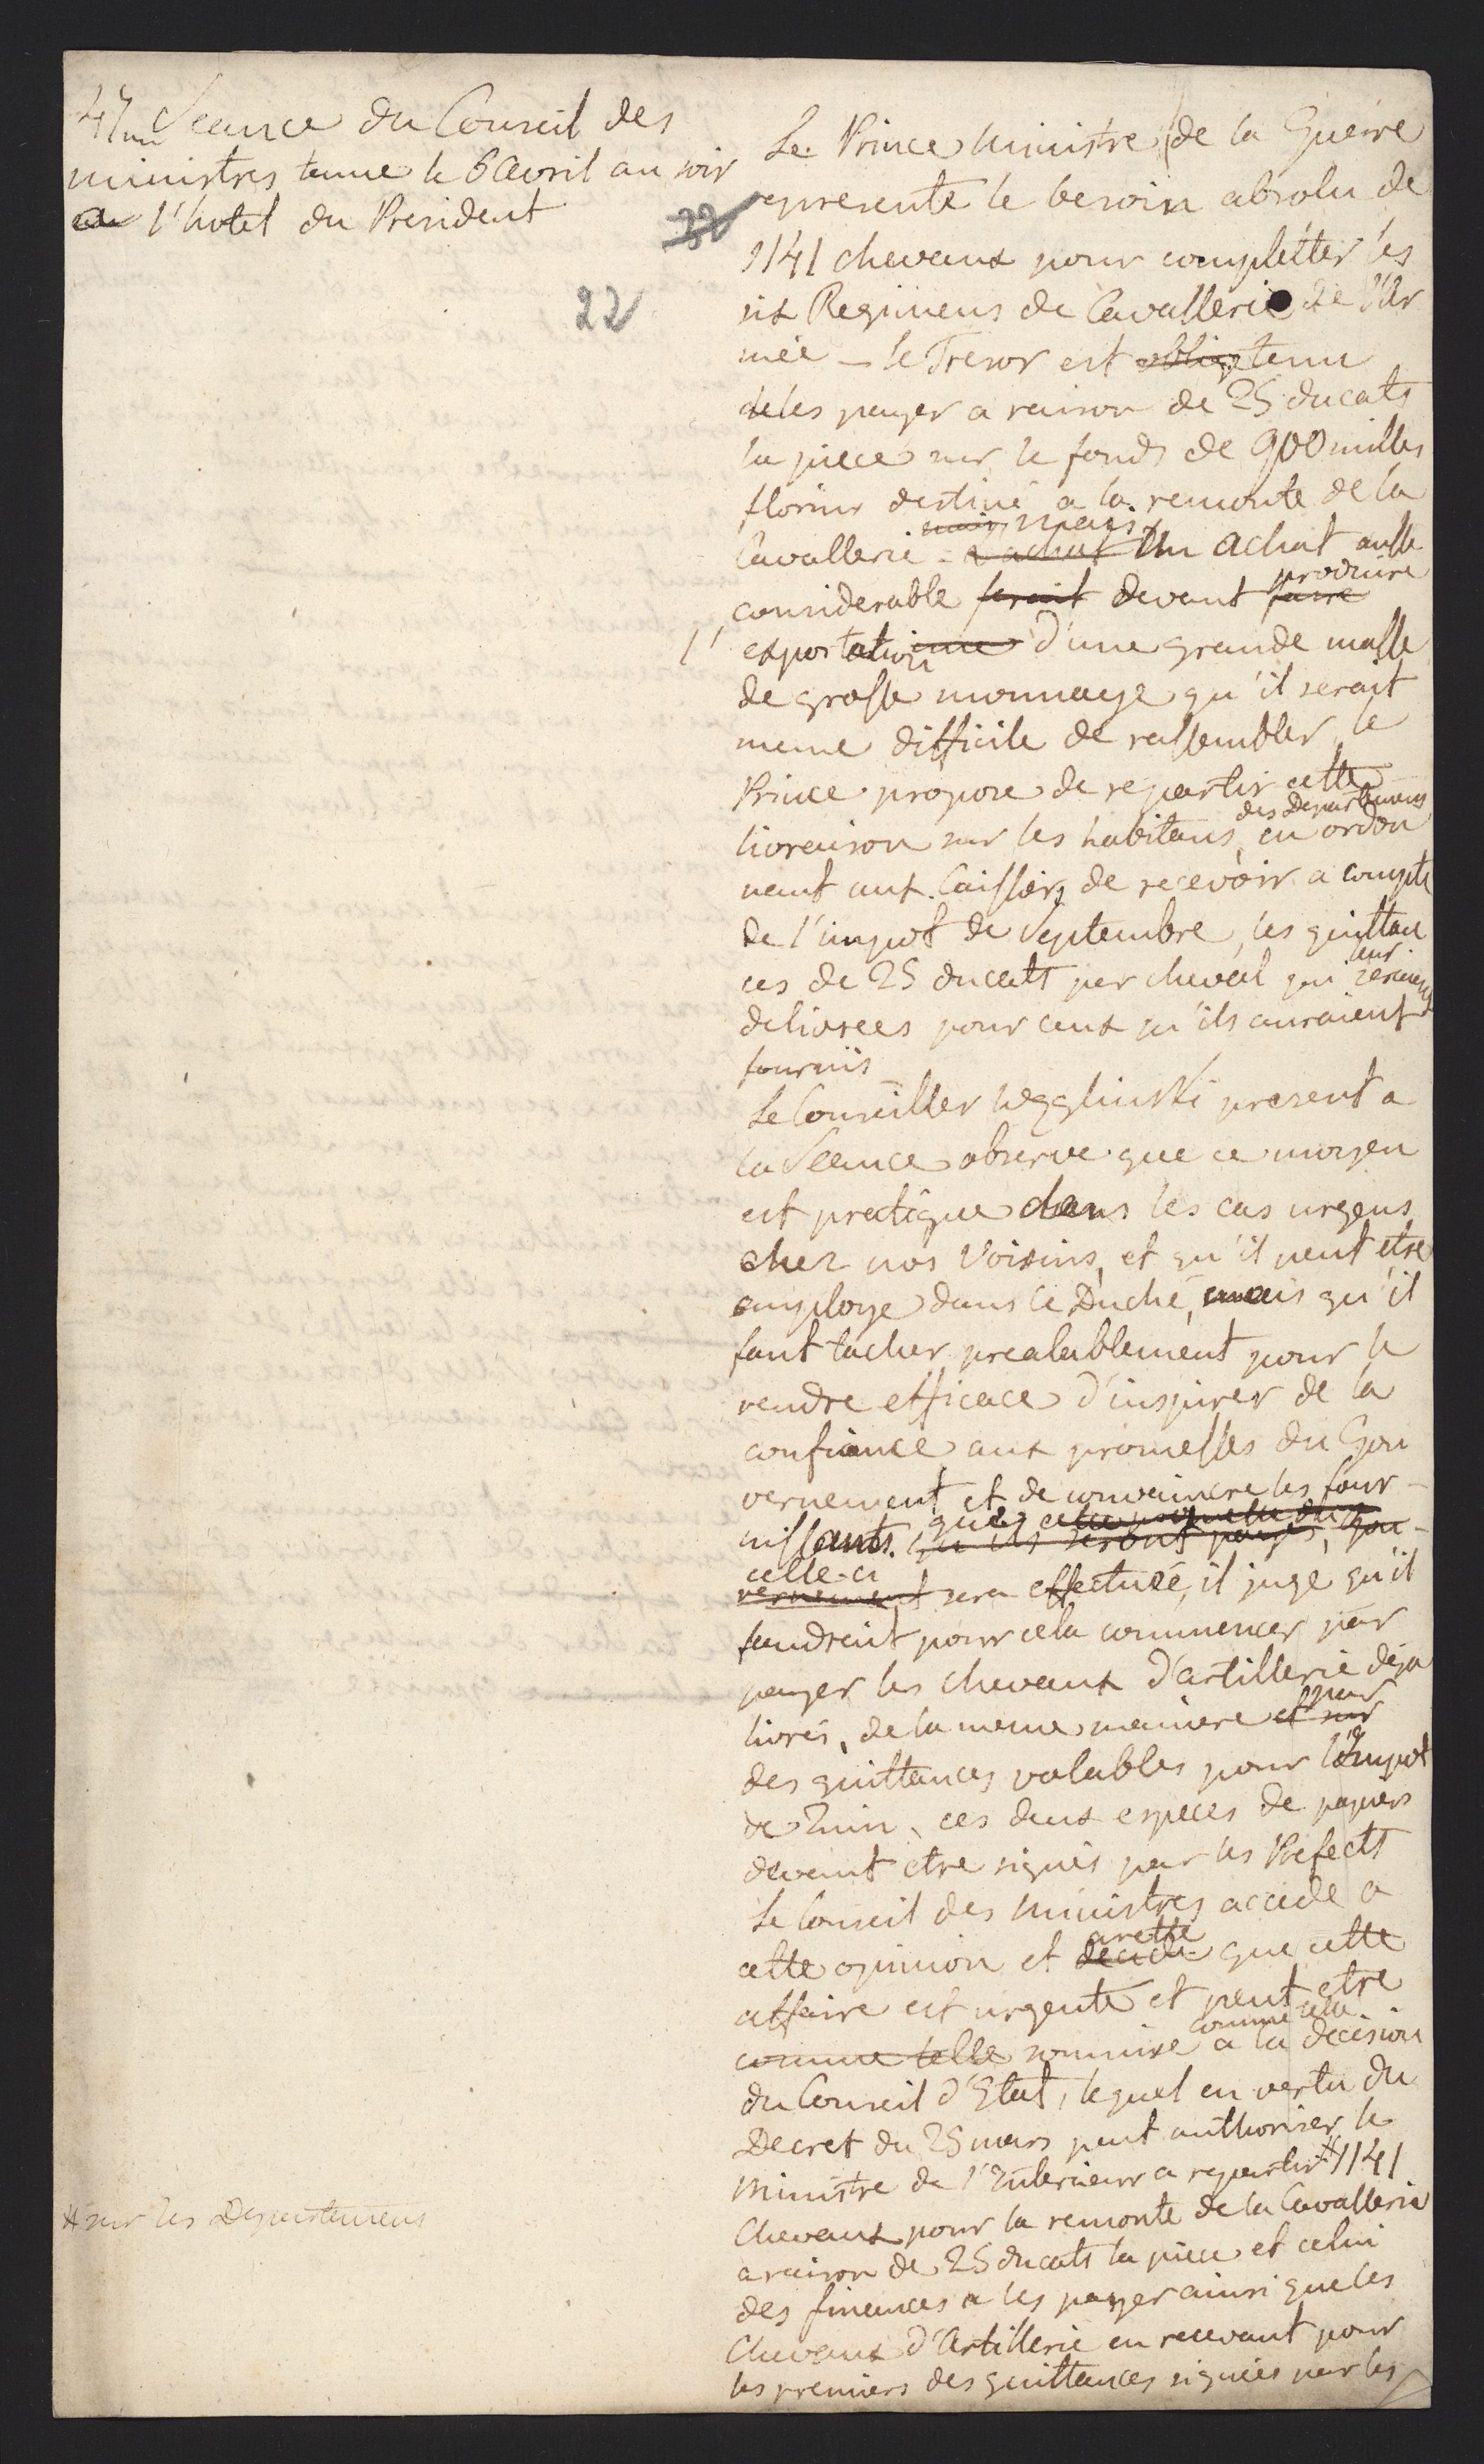 47me Seance du Conseil des
ministres tenue le 6 Avril au soir
a l'hotel du President
32
22
Le Prince Ministre de la Guerre
represente le besoin absolu de
1141 chevaux pour completter les
six Regimens de Cavallerie de l'Ar
mée – le Tresor est obligé tenu
de les payer a raison de 25 ducats
la piece sur le fonds de 900 milles
florins destiné a la remonte de la
mais mais
Cavallerie – L'achat Un achat aussi
produire
considerable ferait devant faire
l' exportation d'une grande masse
de grosse monnaye qu'il serait
meme difficile de rassembler, le
Prince propose de repartir cette
des Departemens
livraison sur les habitans, en ordon
nant aux Caissiers de recevoir a compte
de l'impot de Septembre, les quittan
leur
ces de 25 ducats par cheval qui seraient
delivrees pour ceux qu'ils auraient
fournis
Le Conseiller Węgliński present a
la Séance observe que ce moyen
est pratique dans les cas urgens
chez nos Voisins, et qu'il peut etre
employe dans le Duché, mais qu'il
faut tacher prealablement pour le
rendre efficace d'inspirer de la
confiance aux promesses du Gou
vernement et de convaincre les four-
que cette promesse du
nissants. qu'ils seront payés, Gou-
celle-ci
vernement sera effectuée, il juge qu'il
faudrait pour cela commencer par
payer les chevaux d'artillerie deja
par
livrés, de la meme maniere et sur
des quittances valables pour l'impot
de Juin, ces deux especes de papiers
devant etre signés par les Prefects
Le Conseil des Ministres accede a
arette
cette opinion et decide que cette
affaire est urgente et peut etre
comme telle
comme telle soumise a la decision
du Conseil d'Etat, lequel en vertu du
Decret du 25 mars peut authoriser le
Ministre de l'Interieur a repartir # 1141
# sur les Departemens
Chevaux pour la remonte de la Cavallerie
a raison de 25 ducats la piece et celui
des finances a les payer ainsi que les
Chevaux d'Artillerie en recevant pour
les premiers des quittances signées par les